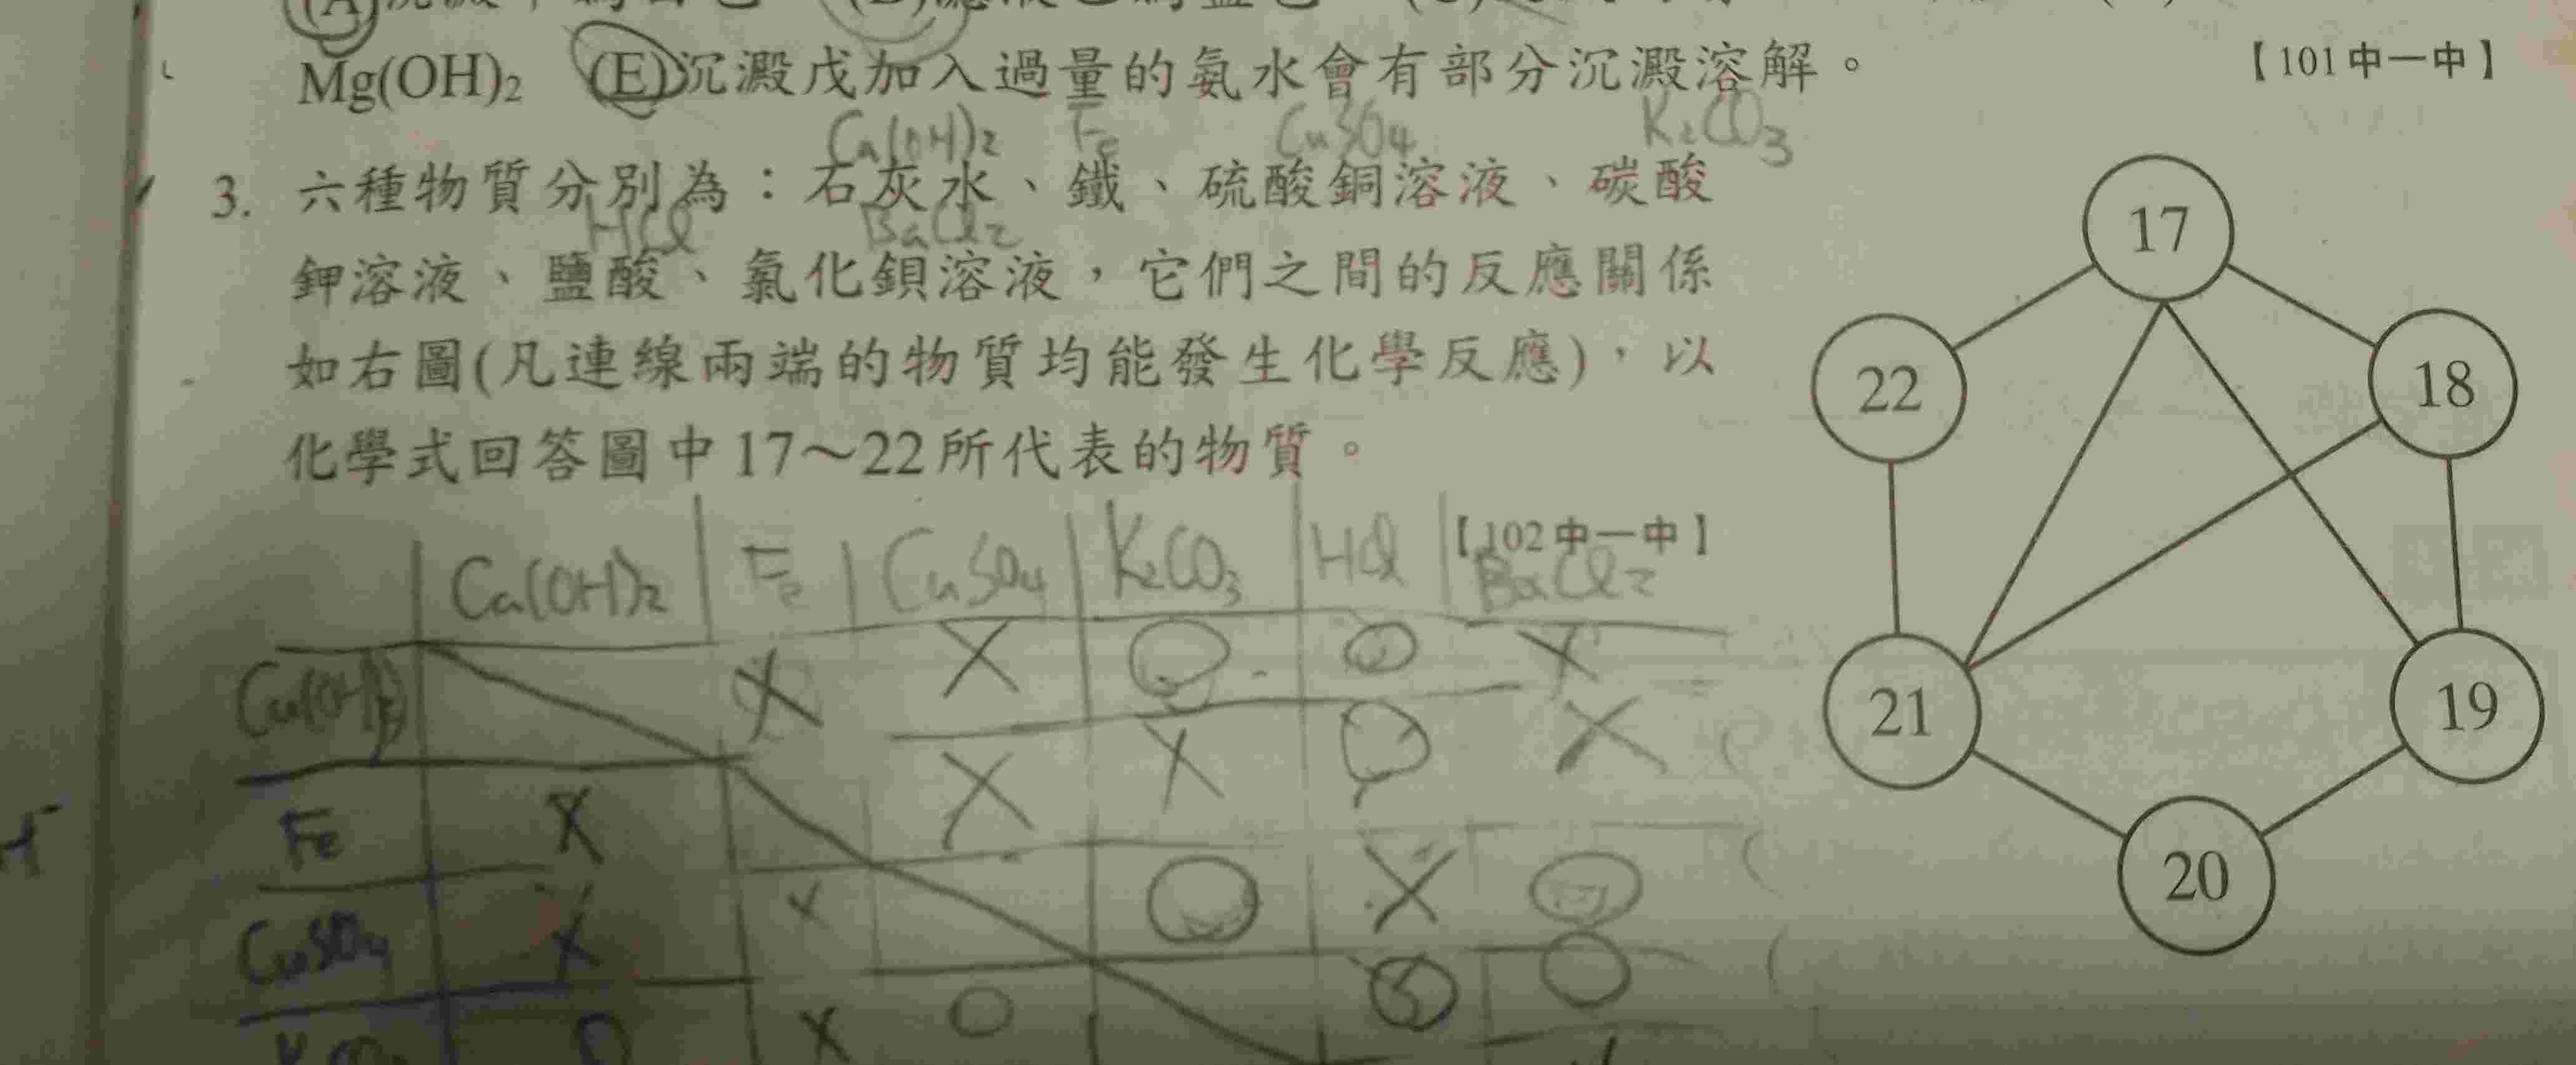 Mg(OH)₂ (E)沉澱戊加入過量的氨水會有部分沉澱溶解。 【101中一中】
Ca(OH)₂ Fe CuSO₄ K₂CO₃
3. 六種物質分別為：石灰水、鐵、硫酸銅溶液、碳酸
HCl BaCl₂
鉀溶液、鹽酸、氯化鋇溶液，它們之間的反應關係
如右圖(凡連線兩端的物質均能發生化學反應)，以
化學式回答圖中17～22所代表的物質。
【102中一中】
17
22
18
21
19
20
Ca(OH)₂ Fe CuSO₄ K₂CO₃ HCl BaCl₂
X X O O X
Fe X X X O X
CuSO₄ X X O X O
O X O O O